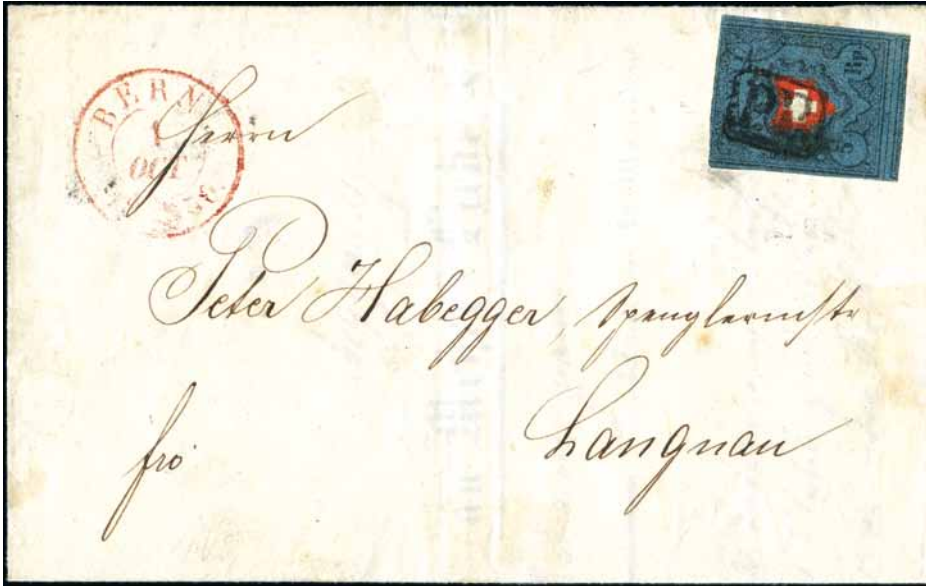 BERN
1
OCT
Herrn
Peter Habegger, Spenglermstr
Langnau
fro
PP
Rp.
5